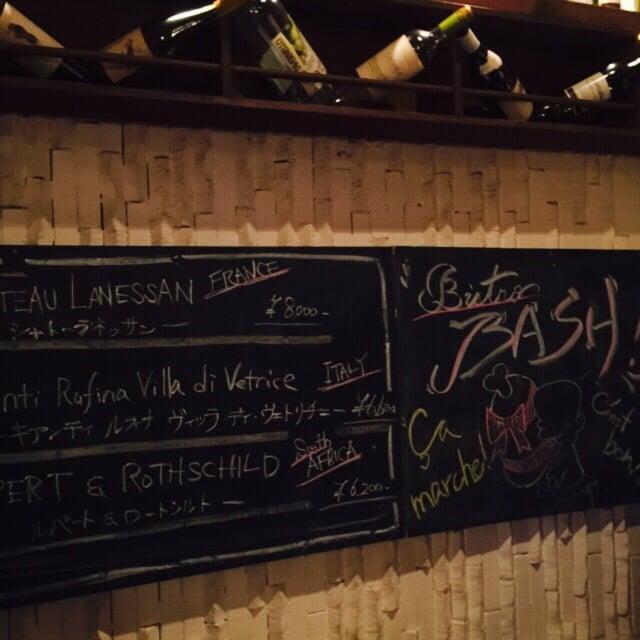 TEAU LANESSAN FRANCE
¥8000-
シャトーラネッサン
nti Rufina Villa di Vetrice ITALY
キアンティ ルフナ ヴィッラ ディ ヴェトリチェー
PERT & ROTHSCHILD South AFRICA
¥6.200-
ルパート&ロートシルト
Bistro
BASH!
Ça
marche!
C'est